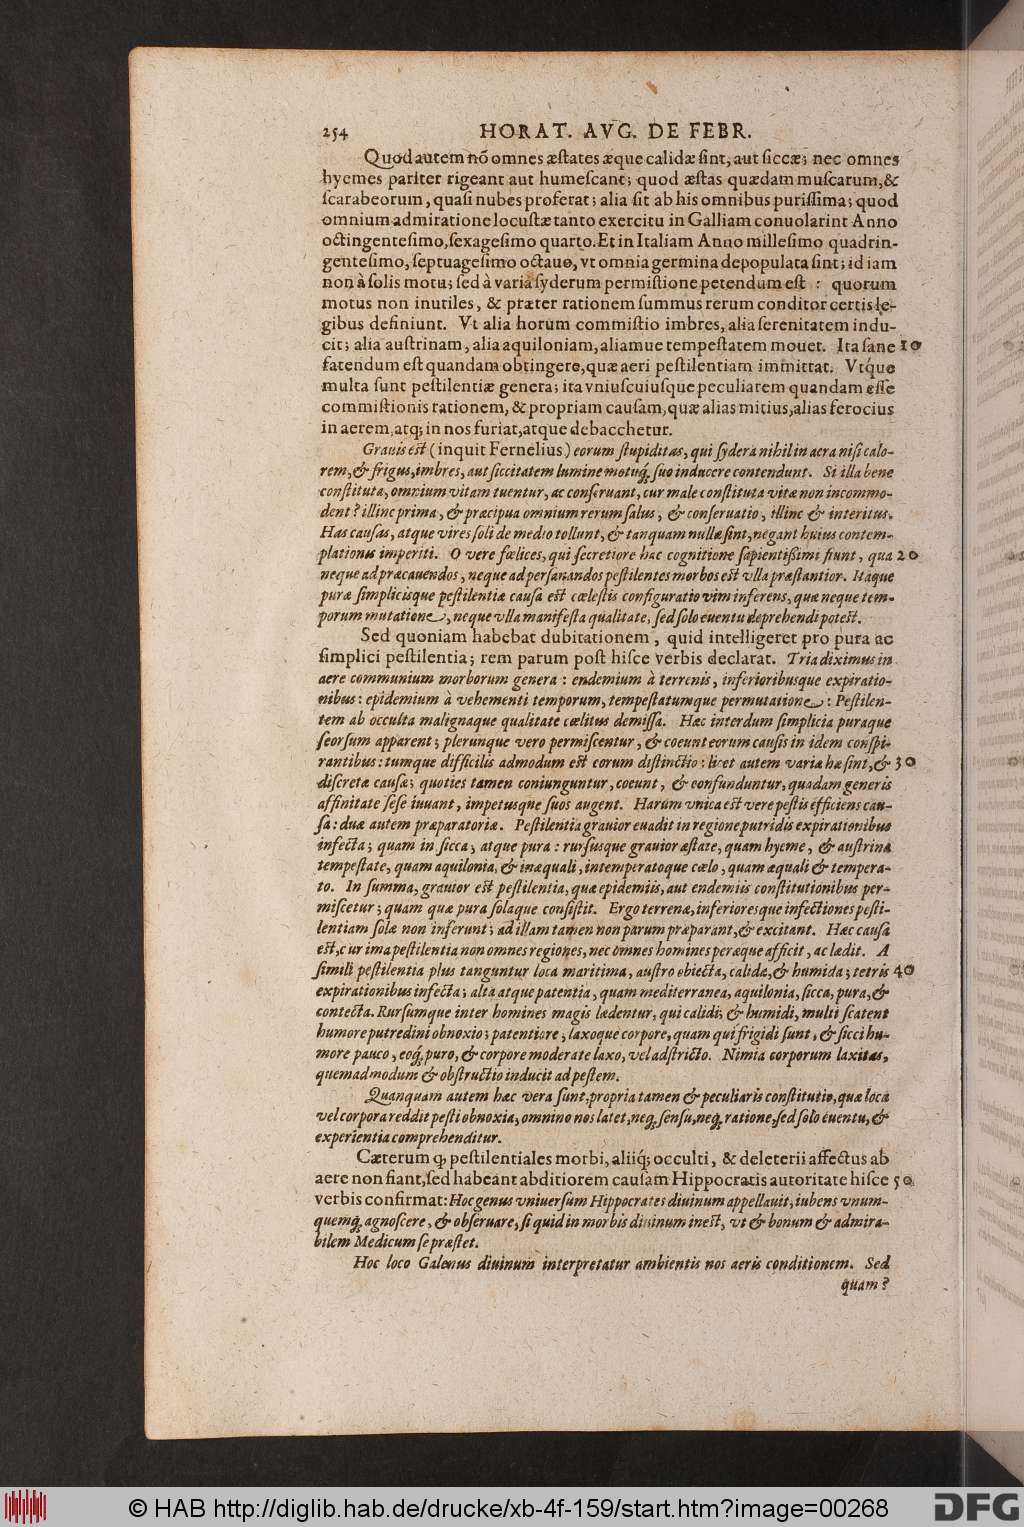 254 HORAT. AVG. DE FEBR.
Quod autem nõ omnes æstates æque calidæ sint, aut siccæ; nec omnes
hyemes pariter rigeant aut humescant; quod æstas quædam muscarum, &
scarabeorum, quasi nubes proferat; alia sit ab his omnibus purissima; quod
omnium admiratione locustæ tanto exercitu in Galliam conuolarint Anno
octingentesimo, sexagesimo quarto. Et in Italiam Anno millesimo quadrin-
gentesimo, septuagesimo octauo, vt omnia germina depopulata sint; id iam
non à solis motu; sed à varia syderum permistione petendum est : quorum
motus non inutiles, & præter rationem summus rerum conditor certis le-
gibus definiunt. Vt alia horum commistio imbres, alia serenitatem indu-
cit; alia austrinam, alia aquiloniam, aliamue tempestatem mouet. Ita sane 10
fatendum est quandam obtingere, quæ aeri pestilentiam immittat. Vtque
multa sunt pestilentiæ genera; ita vniuscuiusque peculiarem quandam esse
commistionis rationem, & propriam causam, quæ alias mitius, alias ferocius
in aerem, atq; in nos furiat, atque debacchetur.
Grauis est (inquit Fernelius) eorum stupiditas, qui sydera nihil in aera nisi calo-
rem, & frigus, imbres, aut siccitatem lumine motuq; suo inducere contendunt. Si illa bene
constituta, omnium vitam tuentur, ac conseruant, cur male constituta vitæ non incommo-
dent? illinc prima, & præcipua omnium rerum salus, & conseruatio, illinc & interitus.
Has causas, atque vires soli de medio tollunt, & tanquam nullæ sint, negant huius contem-
plationis imperiti. O vere fœlices, qui secretiore hac cognitione sapientißimi fiunt, qua 20
neque ad præcauendos, neque ad persanandos pestilentes morbos est vlla præstantior. Itaque
puræ simplicisque pestilentiæ causa est cœlestis configuratio vim inferens, quæ neque tem-
porum mutatione, neque vlla manifesta qualitate, sed solo euentu deprehendi potest.
Sed quoniam habebat dubitationem, quid intelligeret pro pura ac
simplici pestilentia; rem parum post hisce verbis declarat. Tria diximus in
aere communium morborum genera : endemium à terrenis, inferioribusque expiratio-
nibus : epidemium à vehementi temporum, tempestatumque permutatione : Pestilen-
tem ab occulta malignaque qualitate cœlitus demissa. Hæc interdum simplicia puraque
seorsum apparent; plerunque vero permiscentur, & coeunt eorum causis in idem conspi-
rantibus : tumque difficilis admodum est eorum distinctio : licet autem variæ hæ sint, & 30
discretæ causæ; quoties tamen coniunguntur, coeunt, & confunduntur, quadam generis
affinitate sese iuuant, impetusque suos augent. Harum vnica est vere pestis efficiens cau-
sa : duæ autem præparatoriæ. Pestilentia grauior euadit in regione putridis expirationibus
infecta; quam in sicca; atque pura : rursusque grauior æstate, quam hyeme, & austrina
tempestate, quam aquilonia, & inæquali, intemperatoque cœlo, quam æquali & tempera-
to. In summa, grauior est pestilentia, quæ epidemiis, aut endemiis constitutionibus per-
miscetur; quam quæ pura solaque consistit. Ergo terrenæ, inferioresque infectiones pesti-
lentiam solæ non inferunt; ad illam tamen non parum præparant, & excitant. Hæc causa
est, cur ima pestilentia non omnes regiones, nec omnes homines peræque afficit, ac lædit. A
simili pestilentia plus tanguntur loca maritima, austro obiecta, calida, & humida; tetris 40
expirationibus infecta; alta atque patentia, quam mediterranea, aquilonia, sicca, pura, &
contecta. Rursumque inter homines magis lædentur, qui calidi; & humidi, multi scatent
humore putredini obnoxio; patentiore; laxoque corpore, quam qui frigidi sunt, & sicci hu-
more pauco, eoq; puro, & corpore moderate laxo, vel adstricto. Nimia corporum laxitas,
quemadmodum & obstructio inducit ad pestem.
Quanquam autem hæc vera sunt, propria tamen & peculiaris constitutio, quæ loca
vel corpora reddit pesti obnoxia, omnino nos latet, neq; sensu, neq; ratione, sed solo euentu, &
experientia comprehenditur.
Cæterum q; pestilentiales morbi, aliiq; occulti, & deleterii affectus ab
aere non fiant, sed habeant abditiorem causam Hippocratis autoritate hisce 50
verbis confirmat: Hoc genus vniuersum Hippocrates diuinum appellauit, iubens vnum-
quemq; agnoscere, & obseruare, si quid in morbis diuinum inest, vt & bonum & admira-
bilem Medicum se præstet.
Hoc loco Galenus diuinum interpretatur ambientis nos aeris conditionem. Sed
quam?
© HAB http://diglib.hab.de/drucke/xb-4f-159/start.htm?image=00268
DFG